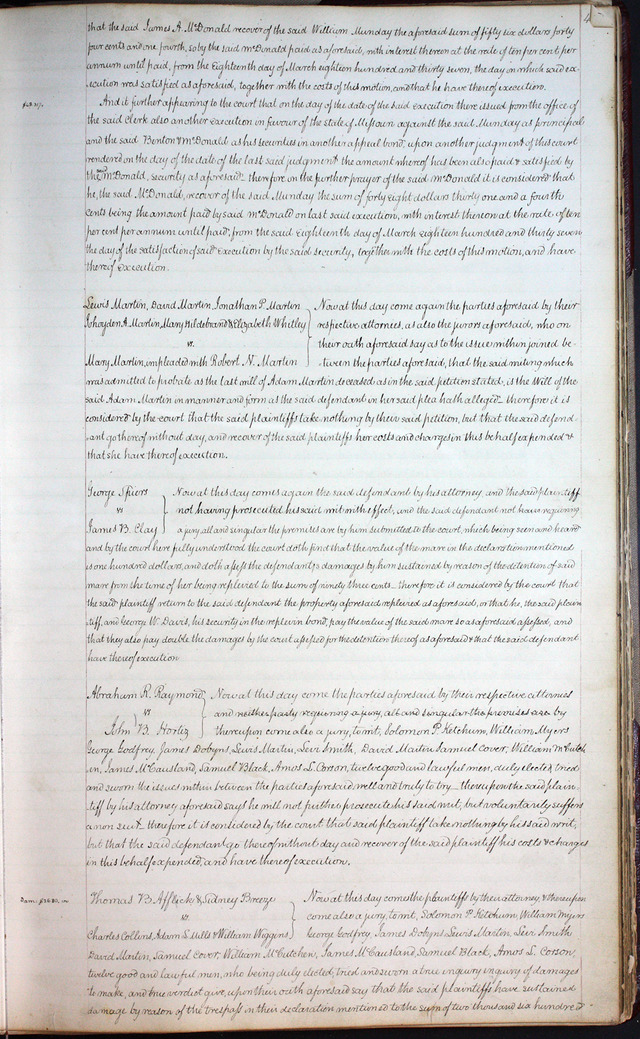 that the said James A. McDonald recover of the said William Munday the aforesaid sum of fifty six dollars forty
four cents and one fourth, so by the said McDonald paid as aforesaid, with interest thereon at the rate of ten per cent per
annum until paid, from the Eighteenth day of March eighteen hundred and thirty seven, the day on which said ex-
ecution was satisfied as aforesaid, together with the costs of this motion, and that he have thereof execution.
And it further appearing to the court that on the day of the date of the said execution there issued from the office of
the said clerk also another execution in favour of the state of Missouri against the said Munday as principal
and the said Benton & McDonald as his securities in another appeal bond, upon another judgment of this court
rendered on the day of the date of the last said judgment the amount whereof has been also paid & satisfied by
the McDonald, security as aforesaid. therefore on the further prayer of the said McDonald it is considered that
he, the said McDonald, recover of the said Munday the sum of forty eight dollars thirty one and a fourth
cents being the amount paid by said McDonald on last said execution, with interest thereon at the rate of ten
per cent per annum until paid, from the said Eighteenth day of March Eighteen hundred and thirty seven
the day of the satisfaction of said execution by the said security, together with the costs of this motion, and have
thereof execution.
Lewis Martin, David Martin, Jonathan P. Martin
A. Martin, Mary Hildebrand & Elizabeth Whitley
vs.
Mary Martin, impleaded with Robert N. Martin
Now at this day come again the parties aforesaid by their
respective attornies, as also the jurors aforesaid, who on
their oath aforesaid say as to the issue within joined be-
tween the parties aforesaid, that the said writing which
was admitted to probate as the last will of Adam Martin deceased as in the said petition stated, is the Will of the
said Adam Martin in manner and form as the said defendant in her said plea hath alleged. therefore it is
considered by the court that the said plaintiffs take nothing by their said petition, but that the said defend-
ant go thereof without day, and recover of the said plaintiffs her costs and charges in this behalf expended &
that she have thereof execution.
George Spiers
vs
James B. Clay
Now at this day comes again the said defendant by his attorney, and the said plaintiff
not having prosecuted his said writ with effect, and the said defendant not having requiring
a jury, all and singular the premises are by him submitted to the court, which being seen and heard
and by the court here fully understood the court doth find that the value of the mare in the declaration mentioned
is one hundred dollars, and doth assess the defendants damages by him sustained by reason of the detention of said
mare from the time of her being replevied to the sum of ninety three cents. therefore it is considered by the court that
the said plaintiff return to the said defendant the property aforesaid replevied as aforesaid, or that he, the said plain-
tiff, and George W. Davis, his security in the replevin bond, pay the value of the said mare so as aforesaid assessed, and
that they also pay double the damages by the court assessed for the detention thereof as aforesaid & that the said defendant
have thereof execution
Abraham R. Raymond
vs
John B. Hortiz
Now at this day come the parties aforesaid by their respective attornies
and neither party requiring a jury, all and singular the premises are by
thereupon come also a jury, to wit, Solomon P. Ketchum, William Myers
George Godfrey, James Dobyns, Lewis Martin, Levi Smith, David Martin, Samuel Cover, William McCutch
en, James McCausland, Samuel Black, Amos L. Corson, twelve good and lawful men, duly elected, tried
and sworn the issues within between the parties aforesaid well and truly to try. thereupon the said plain-
tiff by his attorney aforesaid says he will not further prosecute his said writ, but voluntarily suffers
a non suit. therefore it is considered by the court that said plaintiff take nothing by his said writ,
but that the said defendant go thereof without day and recover of the said plaintiff his costs & charges
in this behalf expended, and have thereof execution.
Thomas B. Affleck & Sidney Breeze
vs.
Charles Collins, Adam L. Mills & William Wiggins
Now at this day come the plaintiffs by their attorney, & thereupon
come also a jury, to wit, Solomon P. Ketchum, William Myers
George Godfrey, James Dobyns Lewis Martin, Levi Smith
David Martin, Samuel Cover, William McCutchen, James McCausland, Samuel Black, Amos L. Corson,
twelve good and lawful men, who being duly elected, tried and sworn a true inquiry inquiry of damages
to make, and true verdict give, upon their oath aforesaid say that the said plaintiffs have sustained
damage by reason of the trespass in their declaration mentioned to the sum of two thousand six hundred